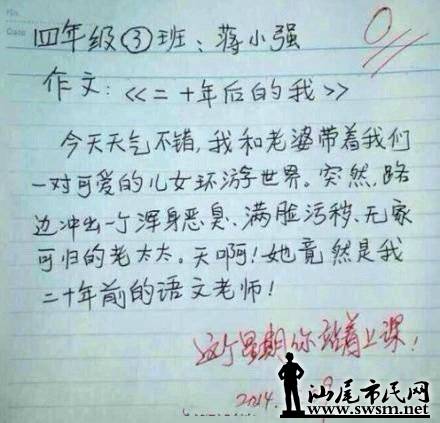 No:
Date
四年级③班:蒋小强
0
作文:<<二十年后的我>>
今天天气不错,我和老婆带着我们
一对可爱的儿女环游世界。突然,路
边冲出一个浑身恶臭、满脸污秽、无家
可归的老太太。天啊!她竟然是我
二十年前的语文老师!
这个星期你站着上课!
2014.
汕尾市民网
www.swsm.net